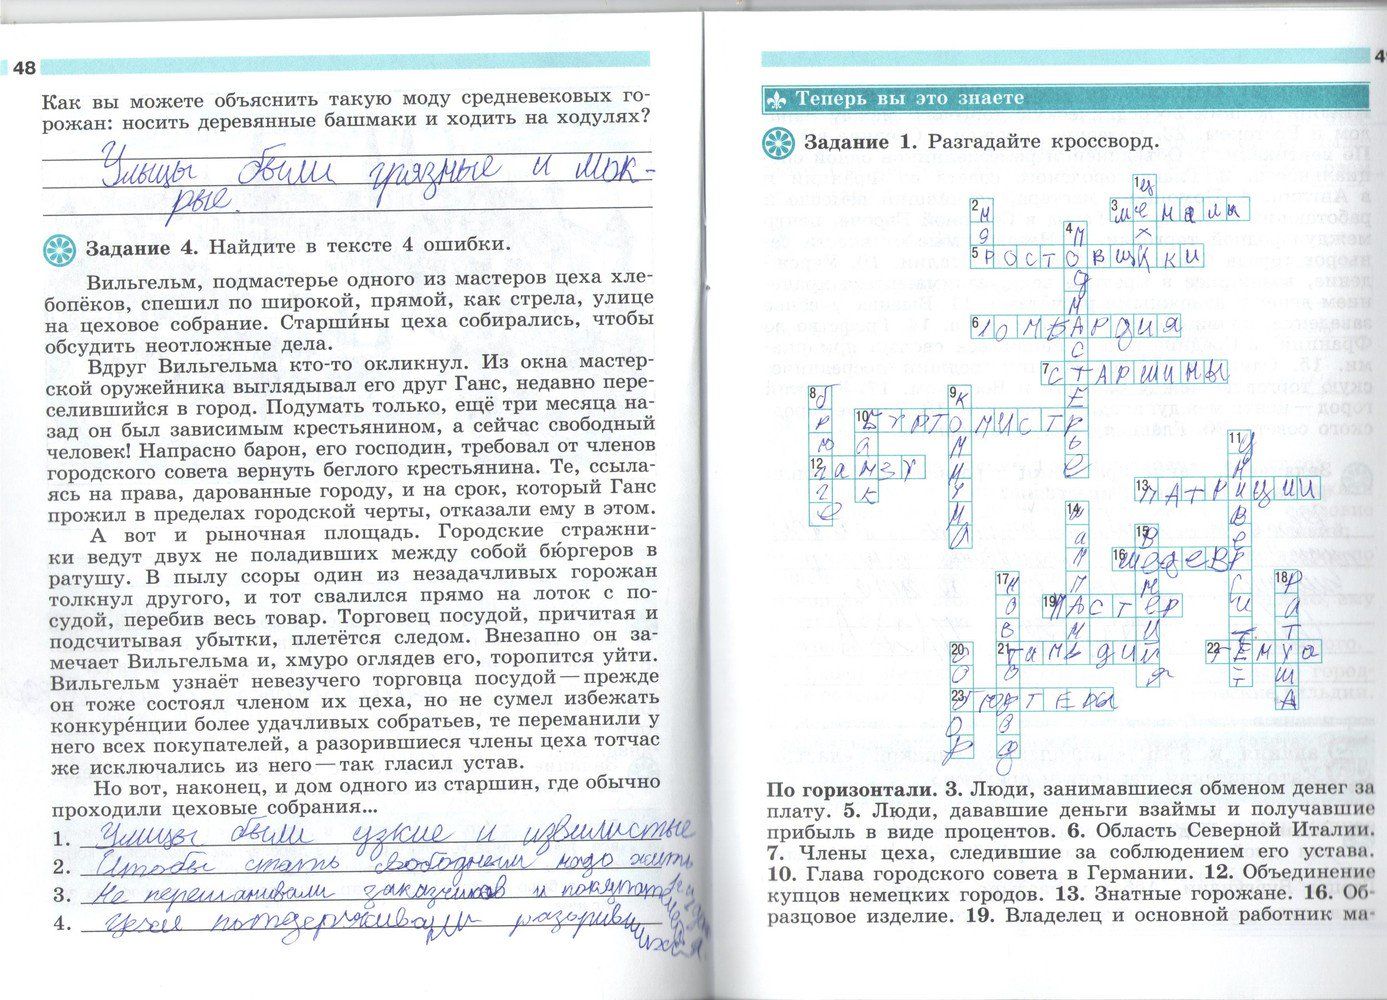 48
Как вы можете объяснить такую моду средневековых го-
рожан: носить деревянные башмаки и ходить на ходулях?
Улицы были грязные и мок-
рые.
Задание 4. Найдите в тексте 4 ошибки.
Вильгельм, подмастерье одного из мастеров цеха хле-
бопёков, спешил по широкой, прямой, как стрела, улице
на цеховое собрание. Старши́ны цеха собирались, чтобы
обсудить неотложные дела.
Вдруг Вильгельма кто-то окликнул. Из окна мастер-
ской оружейника выглядывал его друг Ганс, недавно пере-
селившийся в город. Подумать только, ещё три месяца на-
зад он был зависимым крестьянином, а сейчас свободный
человек! Напрасно барон, его господин, требовал от членов
городского совета вернуть беглого крестьянина. Те, ссыла-
ясь на права, дарованные городу, и на срок, который Ганс
прожил в пределах городской черты, отказали ему в этом.
А вот и рыночная площадь. Городские стражни-
ки ведут двух не поладивших между собой бю́ргеров в
ратушу. В пылу ссоры один из незадачливых горожан
толкнул другого, и тот свалился прямо на лоток с по-
судой, перебив весь товар. Торговец посудой, причитая и
подсчитывая убытки, плетётся следом. Внезапно он за-
мечает Вильгельма и, хмуро оглядев его, торопится уйти.
Вильгельм узнаёт невезучего торговца посудой — прежде
он тоже состоял членом их цеха, но не сумел избежать
конкуре́нции более удачливых собратьев, те переманили у
него всех покупателей, а разорившиеся члены цеха тотчас
же исключались из него — так гласил устав.
Но вот, наконец, и дом одного из старшин, где обычно
проходили цеховые собрания...
1. Улицы были узкие и извилистые
2. Чтобы стать свободным надо жить
3. Не переманивали заказчиков и
4. цехи поддерживали разорившихся
49
Теперь вы это знаете
Задание 1. Разгадайте кроссворд.
1 цех
2 3 менялы
4 подмастерье
5 ростовщики
6 ломбардия
7 старшины
8 брюгге
9 коммуна
10 бургомистр
11 университет
12 ганза
13 патриции
14
15
16 шедевр
17 новгород
18 ратуша
19 мастер
20 собор
21 гильдии
22
23 бюргеры
По горизонтали. 3. Люди, занимавшиеся обменом денег за
плату. 5. Люди, дававшие деньги взаймы и получавшие
прибыль в виде процентов. 6. Область Северной Италии.
7. Члены цеха, следившие за соблюдением его устава.
10. Глава городского совета в Германии. 12. Объединение
купцов немецких городов. 13. Знатные горожане. 16. Об-
разцовое изделие. 19. Владелец и основной работник ма-